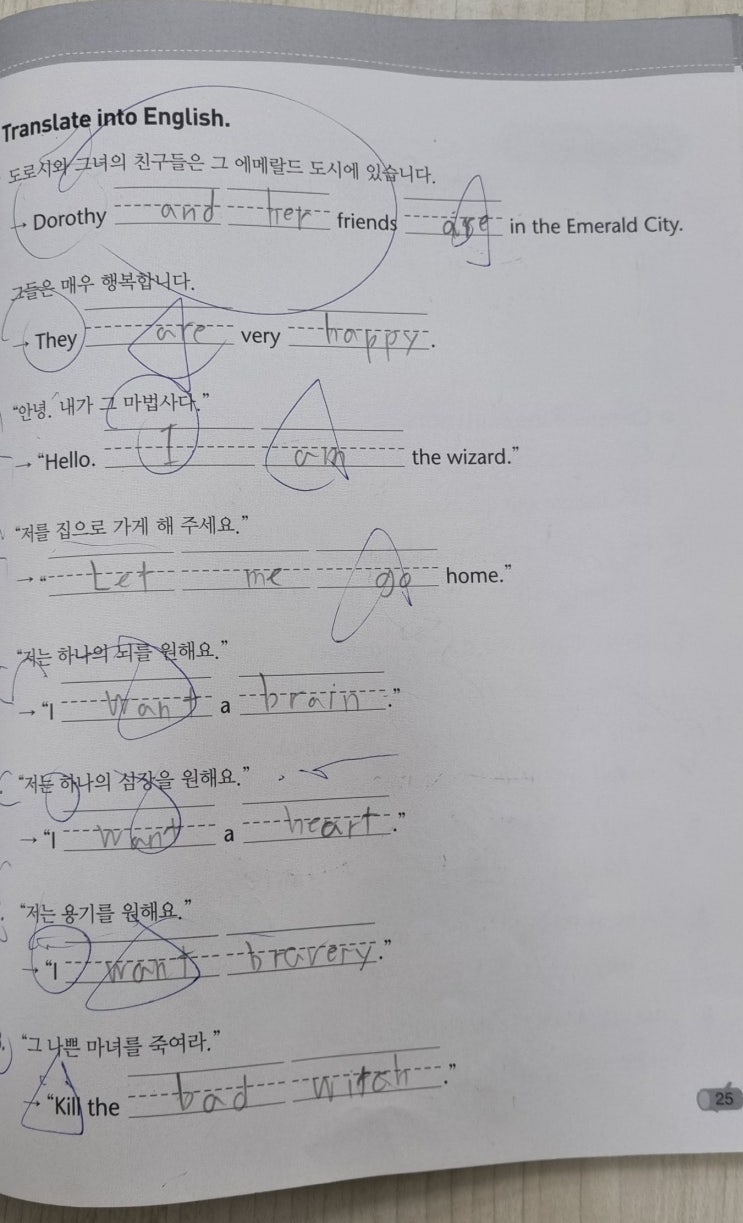 Translate into English.
도로시와 그녀의 친구들은 그 에메랄드 도시에 있습니다.
→ Dorothy and her friends are in the Emerald City.
그들은 매우 행복합니다.
→ They are very happy.
“안녕. 내가 그 마법사다.”
→ “Hello. I am the wizard.”
“저를 집으로 가게 해 주세요.”
→ “Let me go home.”
“저는 하나의 뇌를 원해요.”
→ “I want a brain.”
“저는 하나의 심장을 원해요.”
→ “I want a heart.”
“저는 용기를 원해요.”
→ “I want bravery.”
“그 나쁜 마녀를 죽여라.”
→ “Kill the bad witch.”
25